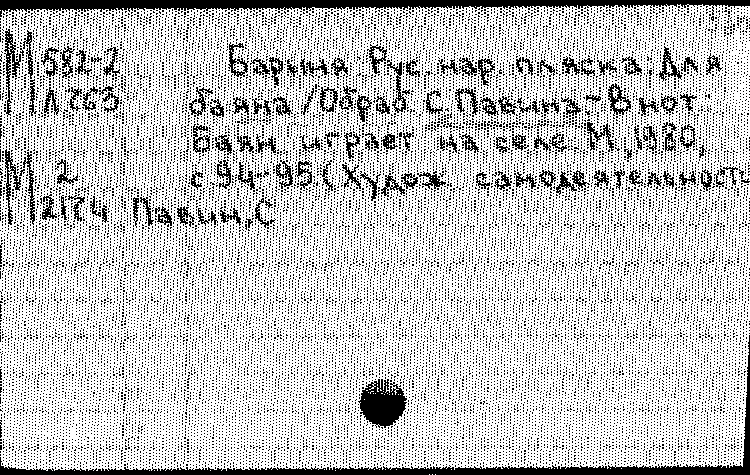 М 582-2 Барыня: Рус. нар. пляска: Для
баяна / Обраб. С. Павина.- В нот.:
Баян играет на селе. М., 1980,
М 2 с. 94-95 (Худож. самодеятельность
Павин, С